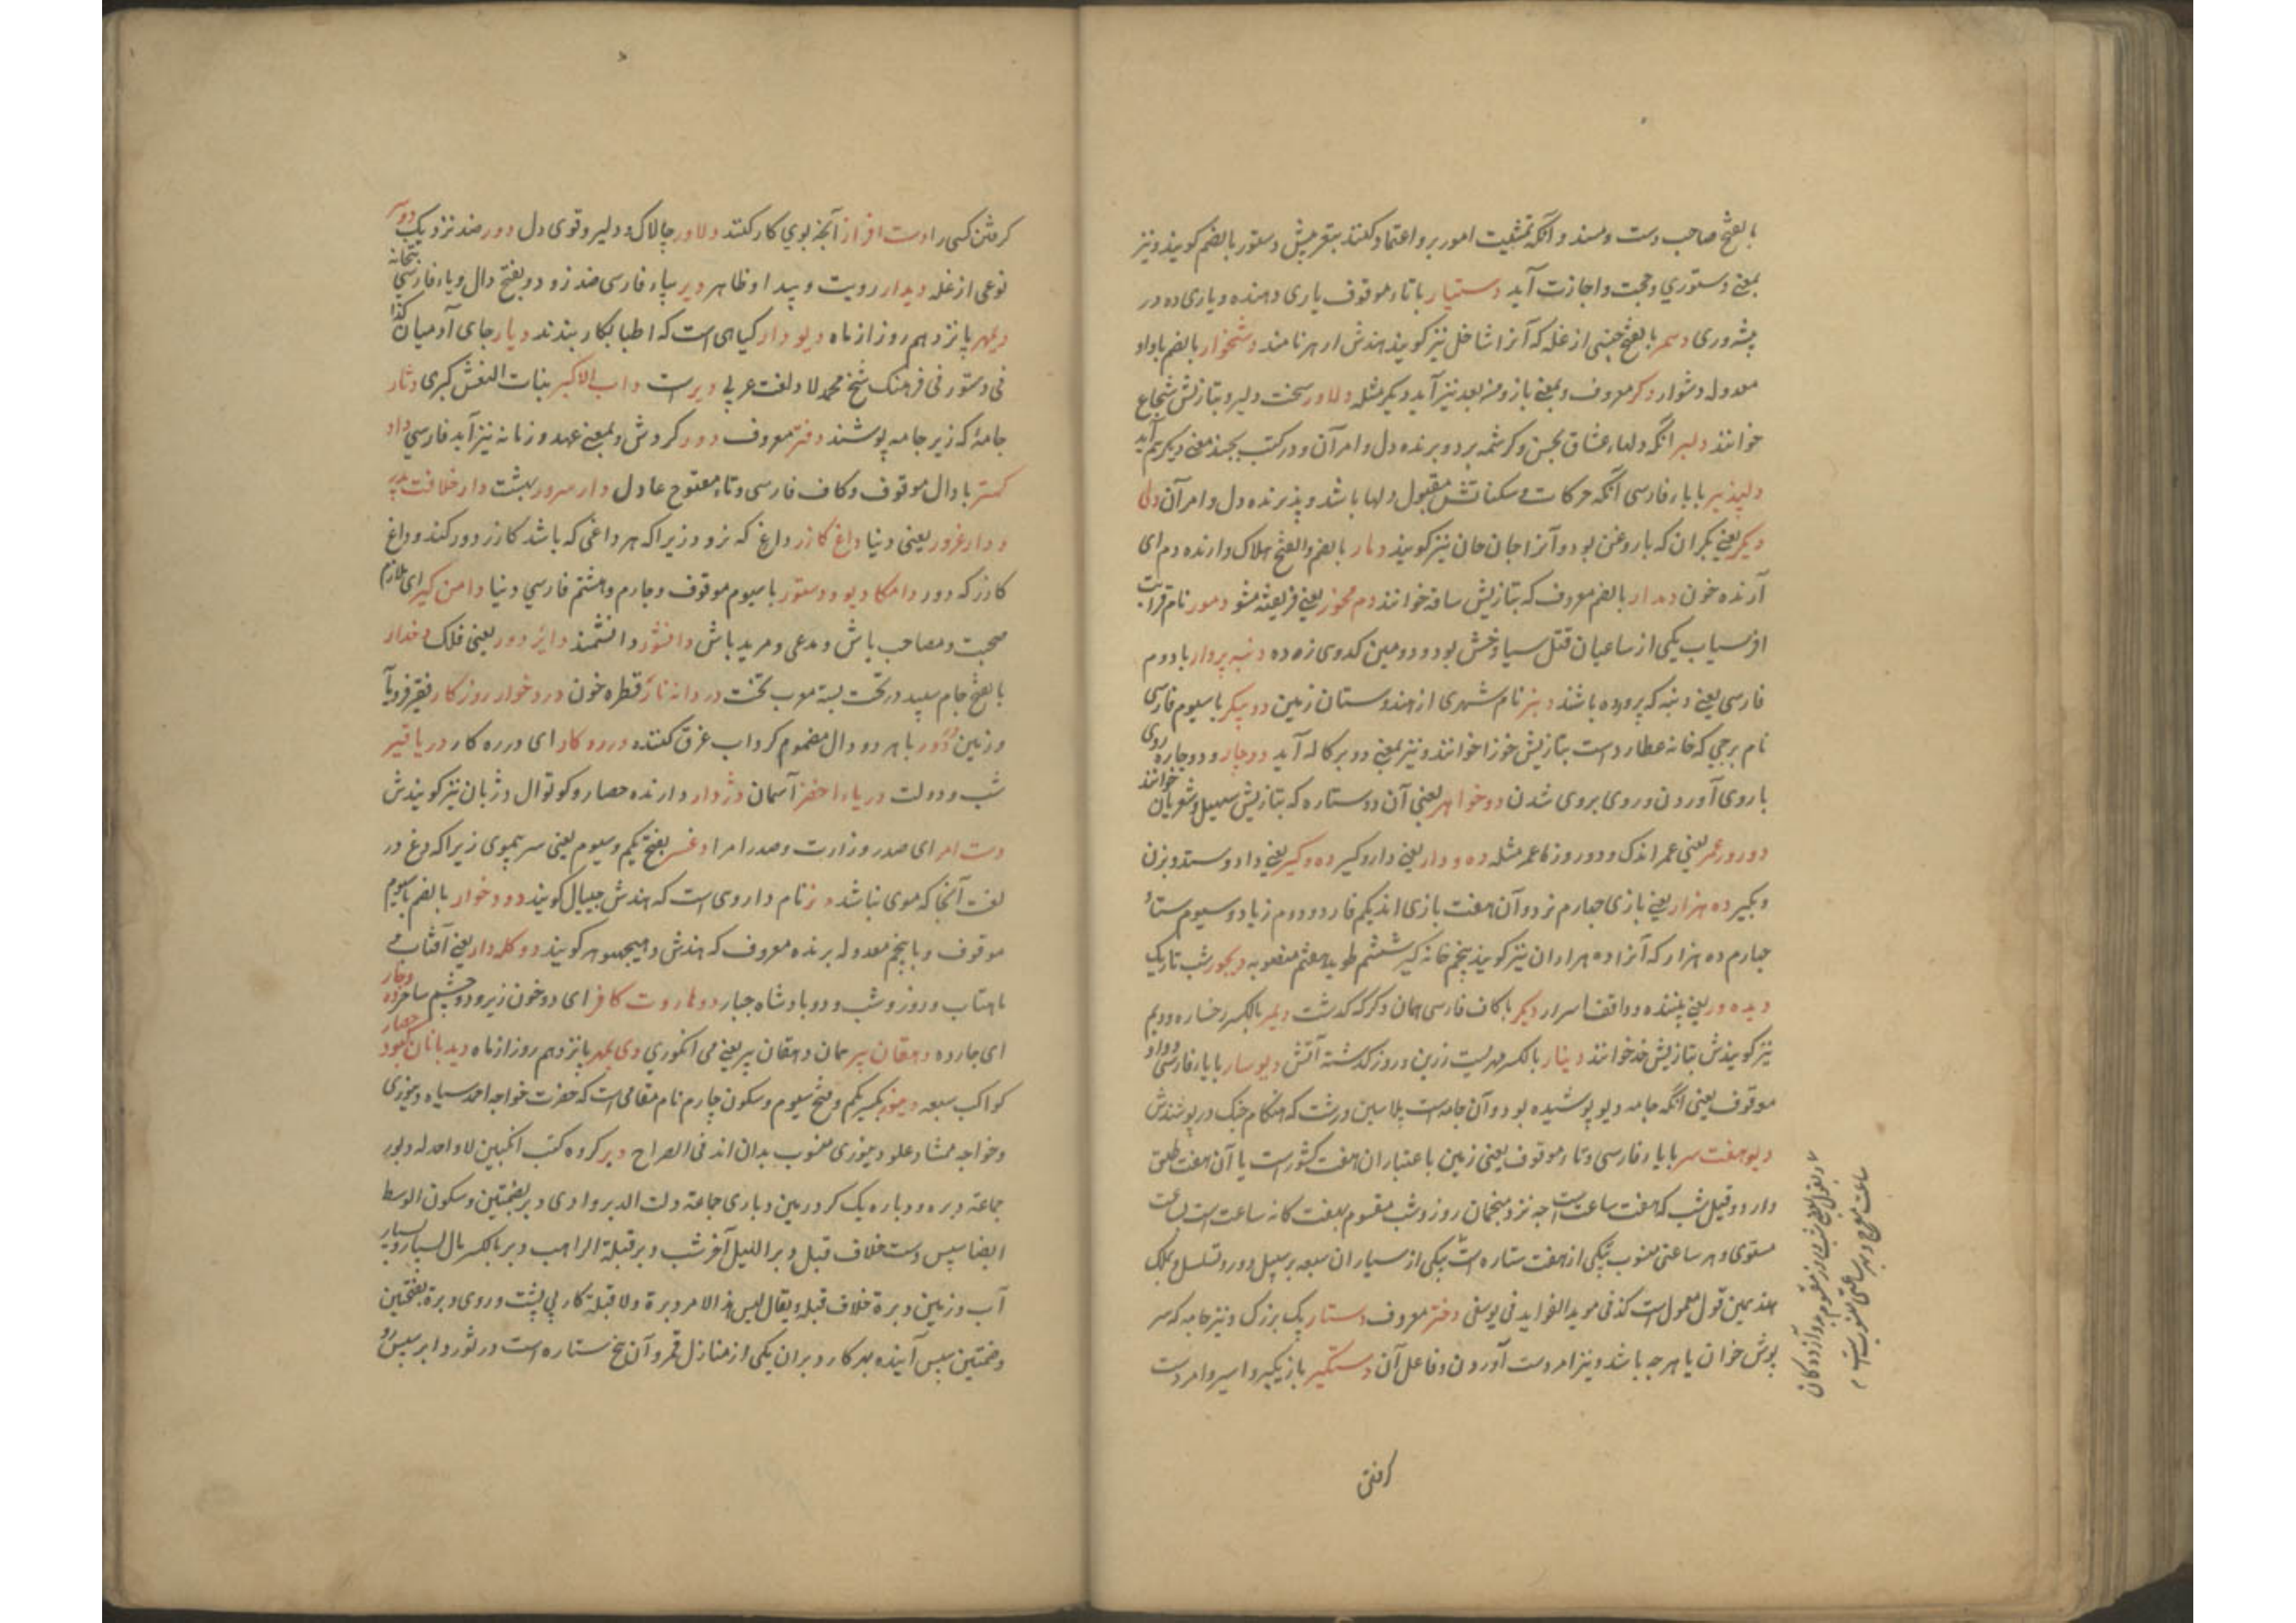 بالفتح صاحب دست و مسند و آنکه تمشیت امور برو اعتماد کنند بتقریبش دستور بالضم کویند و نیز
بمعنی دستوری و حجت و اجازت آید دستیار باتاء موقوف یاری دهنده و یاری ده در
پیشه وری دسمر بالفتح جنسی از غله که آنرا شاخل نیز کویند هندش ارهر نامند دشخوار بالضم باواو
معدوله دشوار دکر معروف و بمعنی باز و من بعد نیز آید دیکر مثله دلاور سخت دلیر و بتازیش شجاع
خوانند دلبر آنکه دلهاء عشاق بحسن و کرشمه برد و برنده دل و امر آن و در کتب بچند معنی دیکر هم آید
دلپذیر باباء فارسی آنکه حرکات و سکناتش مقبول دلها باشد و پذیرنده دل و امر آن دل
دیکر یعنی بکران که باروغن بود و آنرا جان جان نیز کویند دمار بالضم والفتح هلاک و ارنده دم ای
آرنده خون دمدار بالضم معروف که بتازیش ساقه خوانند دم مخور یعنی فریفته مشو دمور نام قرابت
افرسیاب یکی از ساعیان قتل سیاوخش بود و دومین کدوی زه ده دنبه پروار بادوم
فارسی یعنی دنبه که پرورده باشند دنیر نام شهری از هندوستان زمین دو پیکر باسیوم فارسی
نام برجی که خانه عطارد است بتازیش جوزا خوانند و نیز بمعنی دو برکاله آید دوچار و دوچاره روی
باروی آوردن و روی بروی شدن دوخواهر یعنی آن دو ستاره که بتازیش سهیل و شعریان خوانند
دو روز عمر یعنی عمر اندک و دو روزه عمر مثله ده و دار یعنی دار و کیر ده و کیر یعنی داد و ستد و بزن
و بکیر ده هزار یعنی بازی چهارم نرد و آن هفت بازی اند یکم فارد دوم زیاد و سیوم ستاء
چهارم ده هزار که آنرا ده هزاران نیز کویند پنجم خانه کیر ششم طویل هفتم منصوبه دیجور شب تاریک
دیده ور یعنی بیننده و واقف اسرار دیکر باکاف فارسی همان دکر که کذشت دیمر بالکسر رخساره و دیم
نیز کویندش بتازیش خد خوانند دینار بالکسر مهریست زرین و روز کذشته آتش دیوسار باباء فارسی و واو
موقوف یعنی آنکه جامه دیو پوشیده بود و آن جامه است پلاسین درشت که هنکام جنک درپوشندش
دیو هفت سر بایاء فارسی و تاء موقوف یعنی زمین باعتبار ان هفت کشور است یا آن هفت طبق
دارد و قیل شب که هفت ساعت است چه نزد منجمان روز و شب مقسوم بهفت کانه ساعت است بساعت
مستوی و هر ساعتی منسوب بیکی از هفت ستاره است بیکی از سیاران سبعه بر سبیل دور و تسلسل و بملک
هند همین قول معمول است کذا فی موید الفواید فی یوسفی دختر معروف دستار پک بزرک و نیز جامه که سر
پوش خوان یا هر چه باشد و نیز امر دست آوردن و فاعل آن دستکیر بازیکیر و اسیر و امر دست
کرفتن
کرفتن کسی را دست افزار آنچه بوی کار کنند دلاور چالاک و دلیر و قوی دل دور ضد نزدیک دوسر
نوعی از غله دیدار رویت و پیدا و ظاهر دیر بیاء فارسی ضد زود و بفتح دال و یاء فارسی بتخانه
دیمهر پانزدهم روز از ماه دیودار کیاهی است که اطبا بکار بندند دیار جای آدمیان کذا
فی دستور فی فرهنک شیخ محمد لاد لغت عربی دیرست داب الاکبر بنات النعش کبری دثار
جامهٔ که زیر جامه پوشند دفتر معروف دور کردش و بمعنی عهد و زمانه نیز آید فارسی داد
کستر بادال موقوف و کاف فارسی و تاء مفتوح عادل دار سرور بهشت دار خلافت
و دار غرور یعنی دنیا داغ کازر داغ که نرود زیرا که هر داغی که باشد کازر دور کند و داغ
کازر که دور دامکاه دیو و دستور باسیوم موقوف و چارم و هشتم فارسی دنیا دامن کیر ای ملازم
صحبت و مصاحب باش و مدعی و مرید باش دانشور دانشمند دایر دور یعنی فلک دخدار
بالفتح جام سپید در تخت بسته معرب تخت دردانه نار قطره خون دردخوار روزکار فقیر
و زمین دُردُر باهر دو دال مضموم کرداب غرق کننده درره کار ای درره کار دریاقیر
شب و دولت دریاء اخضر آسمان دژدار دارنده حصار و کوتوال دژبان نیز کویندش
دست امر ای صدر وزارت و صدر امرا دغسر بفتح یکم و سیوم یعنی سر بیموی زیرا که دغ در
لغت آنجا که موی نباشد دنز نام داروی است که هندش جیپال کویند دودخوار بالضم باسیوم
موقوف و باپنجم معدوله پرنده معروف که هندش کویند دو کله دار یعنی آفتاب و
ماهتاب و روز و شب و دو بادشاه جبار دو هاروت کافر ای دو خون زیر و دو چشم ساحر ده و چار
ای چارده دهقان پیر همان دهقان پیر یعنی می انکوری دی بمهر پانزدهم روز از ماه دیدبانان حصار کبود
کواکب سبعه دینور بکسر یکم و فتح سیوم و سکون چارم نام مقامی است که حضرت خواجه احمد سیاه دینوری
و خواجه ممشاد علو دینوری منسوب بدان اند فی الصراح دبر کروه کتب انکبین لا واحد له دبور
جماعة دبره و دوباره یک کرد زمین دباری جماعة ذلت الدبر وادی دبر بضمتین و سکون الوسط
ایضا سپس و ست خلاف قبل دبر اللیل آخر شب دبر قبلة الراهب دبر بالکسر مال بسیار
آب و زمین دبرة خلاف قبلة و یقال لیس لهذا الامر دبرة ولا قبلة کار بی پشت و روی دبرة بفتحین
و ضمتین سپس آینده بهر کار دبران یکی از منازل قمر و آن پنج ستاره است در ثور دابر سپس رو